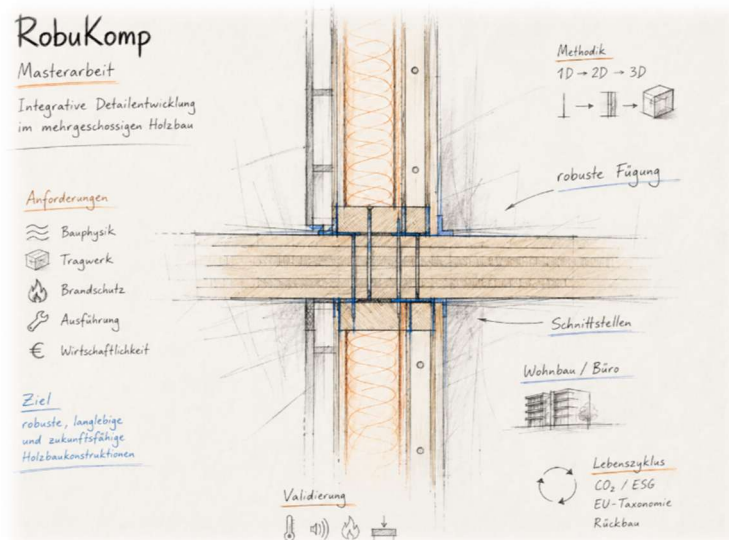 RobuKomp
Masterarbeit
Integrative Detailentwicklung
im mehrgeschossigen Holzbau
Anforderungen
Bauphysik
Tragwerk
Brandschutz
Ausführung
€ Wirtschaftlichkeit
Ziel
robuste, langlebige
und zukunftsfähige
Holzbaukonstruktionen
Methodik
1D → 2D → 3D
robuste Fügung
Schnittstellen
Wohnbau / Büro
Lebenszyklus
CO₂ / ESG
EU-Taxonomie
Rückbau
Validierung